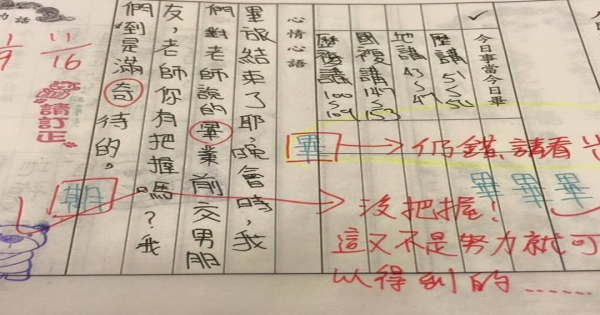 今日事當今日畢
歷講 51~56
地講 43~47
國複講 147~153
歷複講 100~109
心情心語
畢旅結束了耶,晚會時,我
們對老師說的畢業前交男朋
友,老師你有把握嗎?我
們到是滿奇待的。
畢
仍錯,請看
畢畢畢
沒把握!
這又不是努力就可
以得到的……
期
請訂正。
11/16